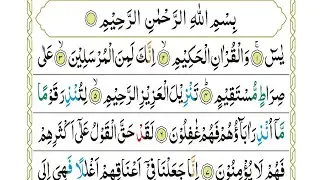 بِسْمِ اللهِ الرَّحْمٰنِ الرَّحِيْمِ
يٰسٓ ۝١ وَالْقُرْاٰنِ الْحَكِيْمِ ۝٢ اِنَّكَ لَمِنَ الْمُرْسَلِيْنَ ۝٣ عَلٰى
صِرَاطٍ مُّسْتَقِيْمٍ ۝٤ تَنْزِيْلَ الْعَزِيْزِ الرَّحِيْمِ ۝٥ لِتُنْذِرَ قَوْمًا
مَّاۤ اُنْذِرَ اٰبَآؤُهُمْ فَهُمْ غٰفِلُوْنَ ۝٦ لَقَدْ حَقَّ الْقَوْلُ عَلٰٓى اَكْثَرِهِمْ
فَهُمْ لَا يُؤْمِنُوْنَ ۝٧ اِنَّا جَعَلْنَا فِيْٓ اَعْنَاقِهِمْ اَغْلٰلًا فَهِيَ اِلَى